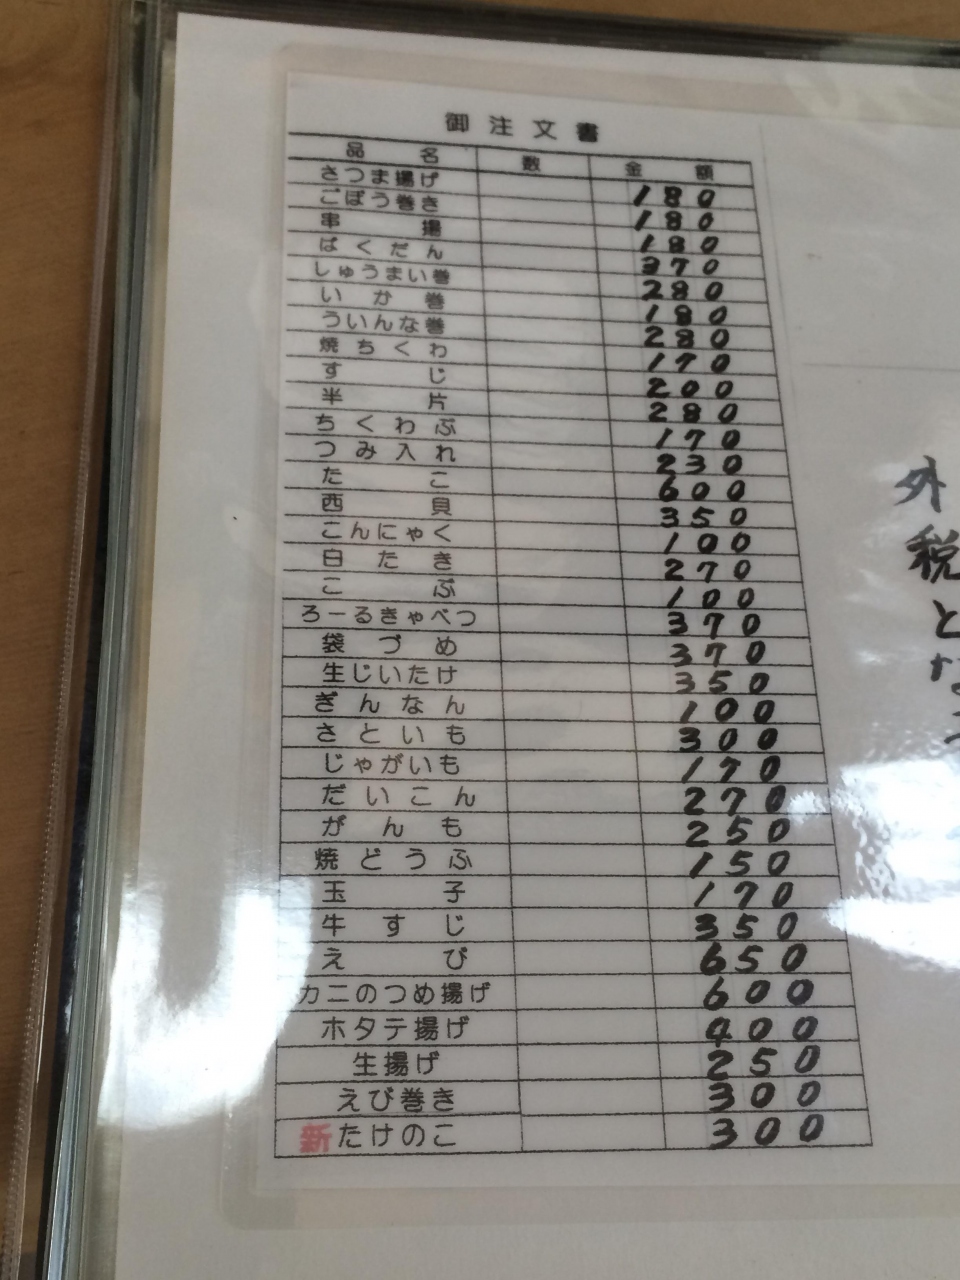 御注文書
品名 数 金額
さつま揚げ 180
ごぼう巻き 180
串揚 180
ばくだん 370
しゅうまい巻 280
いか巻 180
ういんな巻 280
焼ちくわ 170
すじ 200
半片 280
ちくわぶ 170
つみ入れ 230
たこ 600
西貝 350
こんにゃく 100
白たき 270
こぶ 100
ろーるきゃべつ 370
袋づめ 370
生じいたけ 350
ぎんなん 100
さといも 300
じゃがいも 170
だいこん 270
がんも 250
焼どうふ 150
玉子 170
牛すじ 350
えび 650
カニのつめ揚げ 600
ホタテ揚げ 400
生揚げ 250
えび巻き 300
新たけのこ 300
外税とな